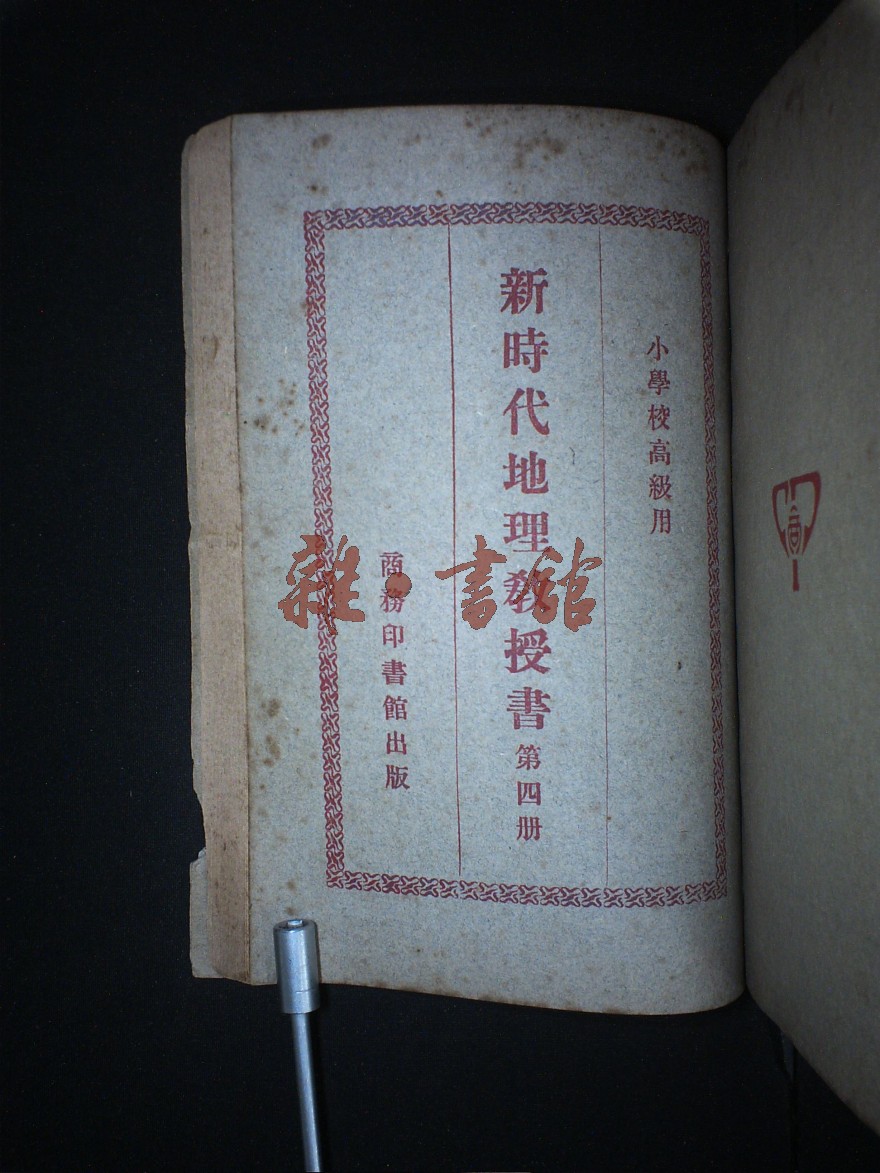 小學校高級用
新時代地理敎授書 第四册
商務印書館出版
雜·書館